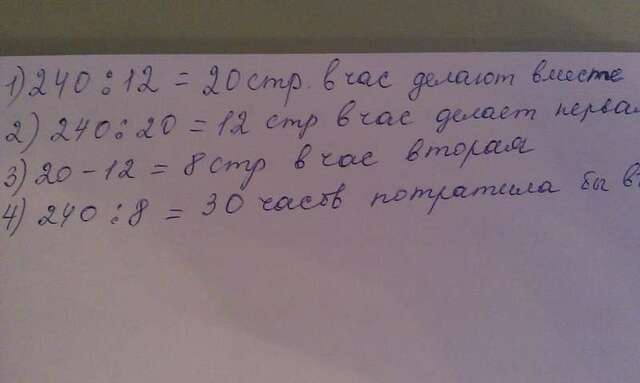 1) 240 : 12 = 20 стр. в час делают вместе
2) 240 : 20 = 12 стр в час делает первая
3) 20 - 12 = 8 стр в час вторая
4) 240 : 8 = 30 часов потратила бы